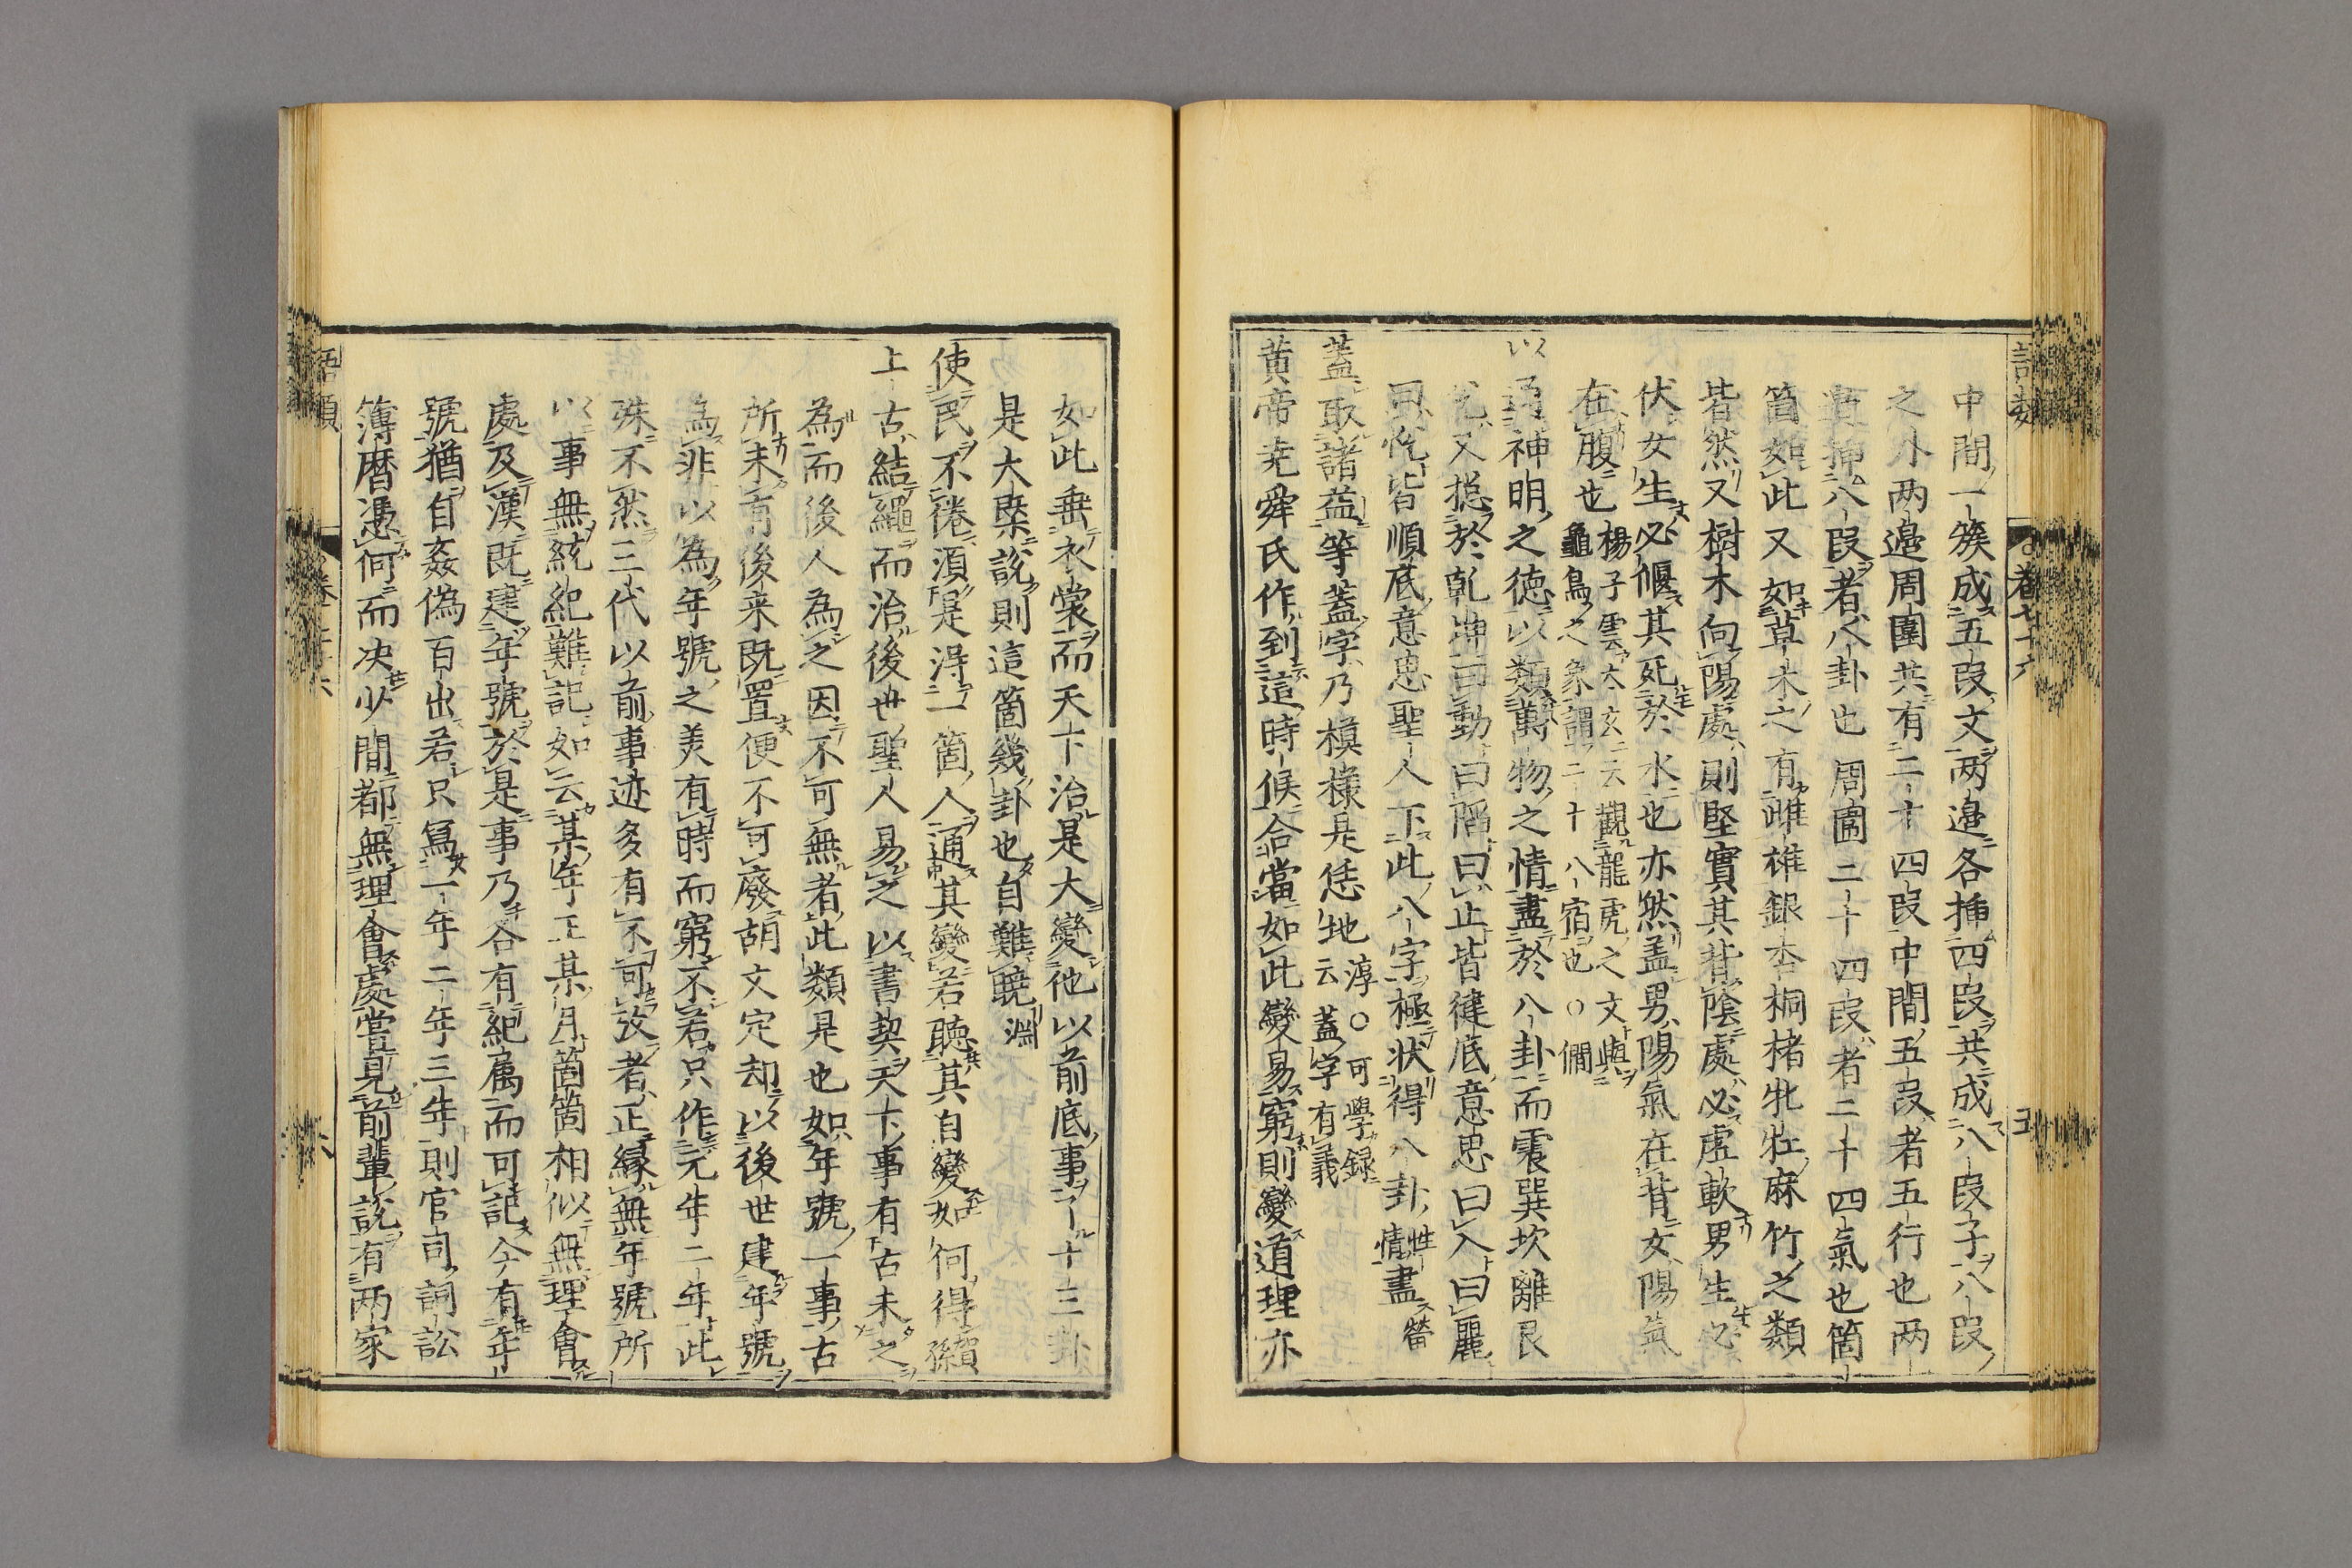 中間一簇成五段文兩邉各挿四段共成八段子八段
之外兩邉周圍共有二十四段中間五段者五行也兩
邉挿八段者八卦也周圍二十四段者二十四氣也箇
箇如此又如草木之有雌雄銀杏桐楮牝牡麻竹之類
皆然又樹木向陽處則堅實其背陰處必虚軟男生必
伏女生必偃其死於水也亦然盖男陽氣在背女陽氣
在腹也
楊子雲太玄云觀龍虎之文與
龜鳥之象謂二十八宿也○僩
以通神明之德以類萬物之情盡於八卦而震巽坎離艮
兌又揔於乾坤曰動曰陷曰止皆健底意思曰入曰麗
曰悅皆順底意思聖人下此八字極狀得八卦性情盡𤇺
蓋取諸益等蓋字乃模様是恁地
淳○可學録
云蓋字有義
黄帝堯舜氏作到這時候合當如此變易窮則變道理亦
如此垂衣裳而天下治是大變他以前底事了十三卦
是大槩說則這箇幾卦也自難曉淵
使民不倦湏是淂一箇人通其變若聽其自變如何得䌫
上古結繩而治後世聖人易之以書契天下事有古未之
為而後人為之因不可無者此類是也如年號一事古
所未有後来既置便不可廢胡文定却以後世建年號
為非以為年號之美有時而窮不若只作元年二年此
殊不然三代以前事迹多有不可攷者正縁無年號所
以事無統紀難記如云某年王某月箇箇相似無理會
處及漢既建年號於是事乃各有紀属而可記今有年
號猶自姦偽百出若只冩一年二年三年則官司詞訟
簿暦憑何而决少間都無理會處嘗見前輩說有兩家
語類
卷七十六
五
語類
卷七十六
六